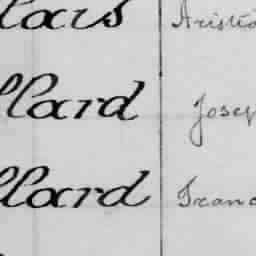 lais Aristi
llard Josep
llard Franc